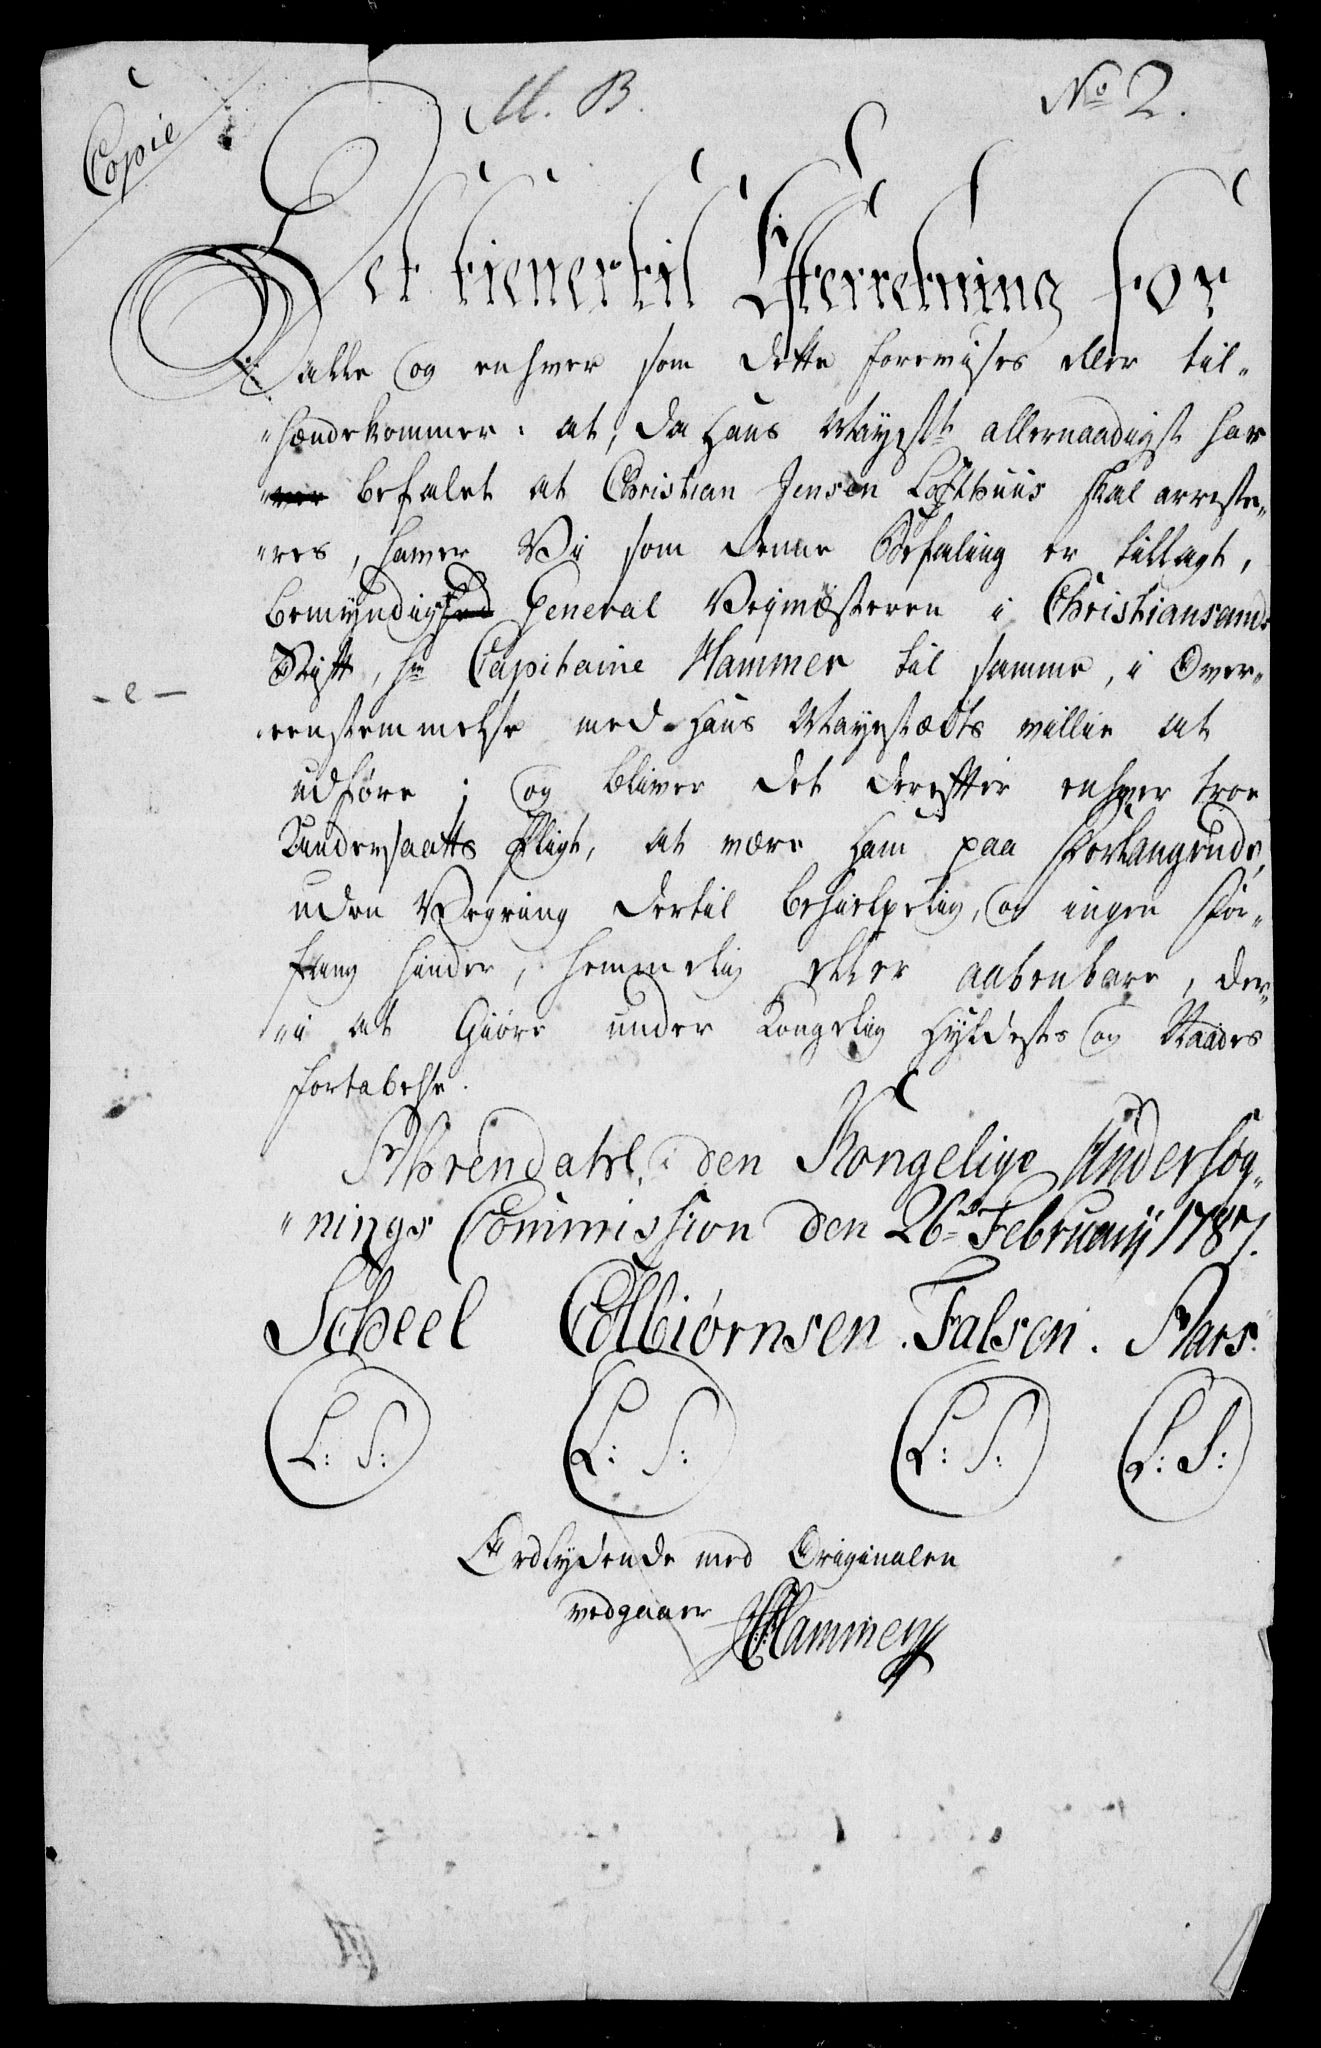 Copie
M. B.
No 2.
Det tiener til Efterretning for
alle og enhver som dette forevises eller til-
"hændekommer: at, da Hans Mayestt allernaadigst har
befalet at Christian Jensen Lofthuus skal arreste-
"res, haver Vi som denne Befaling er tillagt,
bemyndiget General Veymæsteren i Christiansands
Stift, Hr Capitaine Hammer til samme, i Over-
"eenstemmelse med Hans Mayestædts villie at
udføre; og bliver det derefter enhver troe
Undersaatts Pligt, at være ham paa forlangende,
uden Vegring dertil behielpelig, og ingen for-
fang hinder, hemmelig eller aabenbare, der-
"i at Giøre under Kongelig Hyldests og Naades
fortabelse.
Ahrendahl, i den Kongelige Undersøg-
"nings Commission den 26de Februarij 1787.
Scheel Colbiørnsen. Falsen. Aars.
L: S: L: S: L: S: L: S:
Ordlydende med Originalen
vedgaaer Hammer
- e -